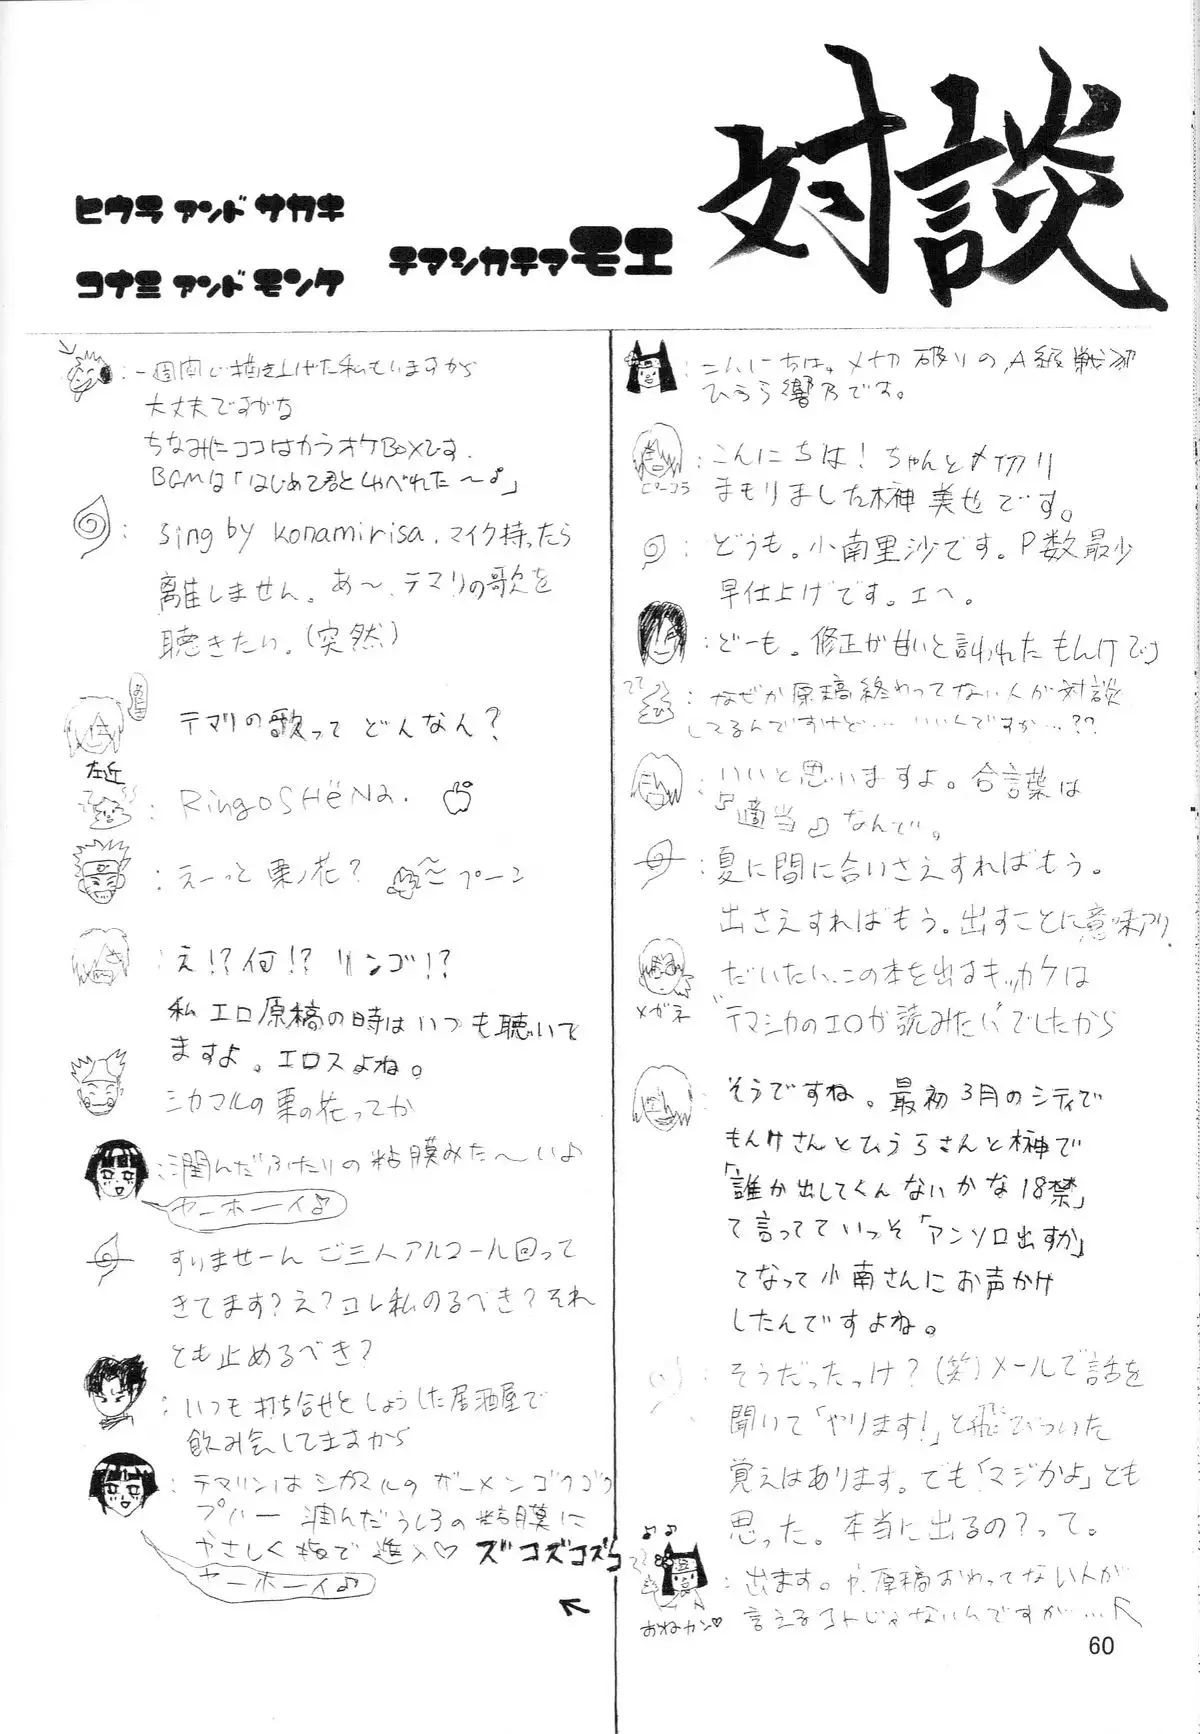 対談
テマシカテマモエ
ヒウラ アンド サカキ
コナミ アンド モンケ
こんにちは。〆切破りのA級戦犯
ひうら響乃です。
ピーコラ
こんにちは！ちゃんと〆切り
まもりました榊 美也です。
どうも。小南里沙です。P数最少
早仕上げです。エヘ。
どーも。修正が甘いと言われたもんけでつ
なぜか原稿終わってない人が対談
してるんですけど… いいんですか…??
いいと思いますよ。合言葉は
「適当♪」なんで。
夏に間に合いさえすればもう。
出さえすればもう。出すことに意味アリ
メガネ
だいたい、この本を出すキッカケは
"テマシカのエロが読みたい"でしたから
そうですね。最初3月のシティで
もんけさんとひうらさんと榊で
「誰か出してくんないかな18禁」
て言ってていっそ「アンソロ出すか」
てなって小南さんにお声かけ
したんですよね。
そうだったっけ？(笑)メールで話を
聞いて「やります！」と飛びついた
覚えはあります。でも「マジかよ」とも
思った。本当に出るの？って。
おねカン♡
出ます。や、原稿おわってない人が
言えるコトじゃないんですが…
一週間で描き上げた私もいますから
大丈夫ですがな
ちなみにココはカラオケBOXです.
BGMは「はじめて君としゃべれた〜♪」
sing by konamirisa. マイク持ったら
離しません。あ〜、テマリの歌を
聴きたい。(突然)
テマリの歌って どんなん？
左近
RingoSHëNa.
えーっと 栗ノ花？
プーン
え!?何!? リンゴ!?
私 エロ原稿の時はいつも聴いて
ますよ。エロスよね。
シカマルの栗の花ってか
潤んだふたりの粘膜みた〜いよ
ヤーホーイ♪
すいませーん ご三人アルコール回って
きてます？え？コレ私のるべき？それ
とも止めるべき？
いつも打ち合せとしょうした居酒屋で
飲み会してますから
テマリンはシカマルの ガーメンゴクゴク
プハー 潤んだうしろの粘膜に
やさしく指で進入♡ ズコズコズコ
ヤーホーイ♪
60